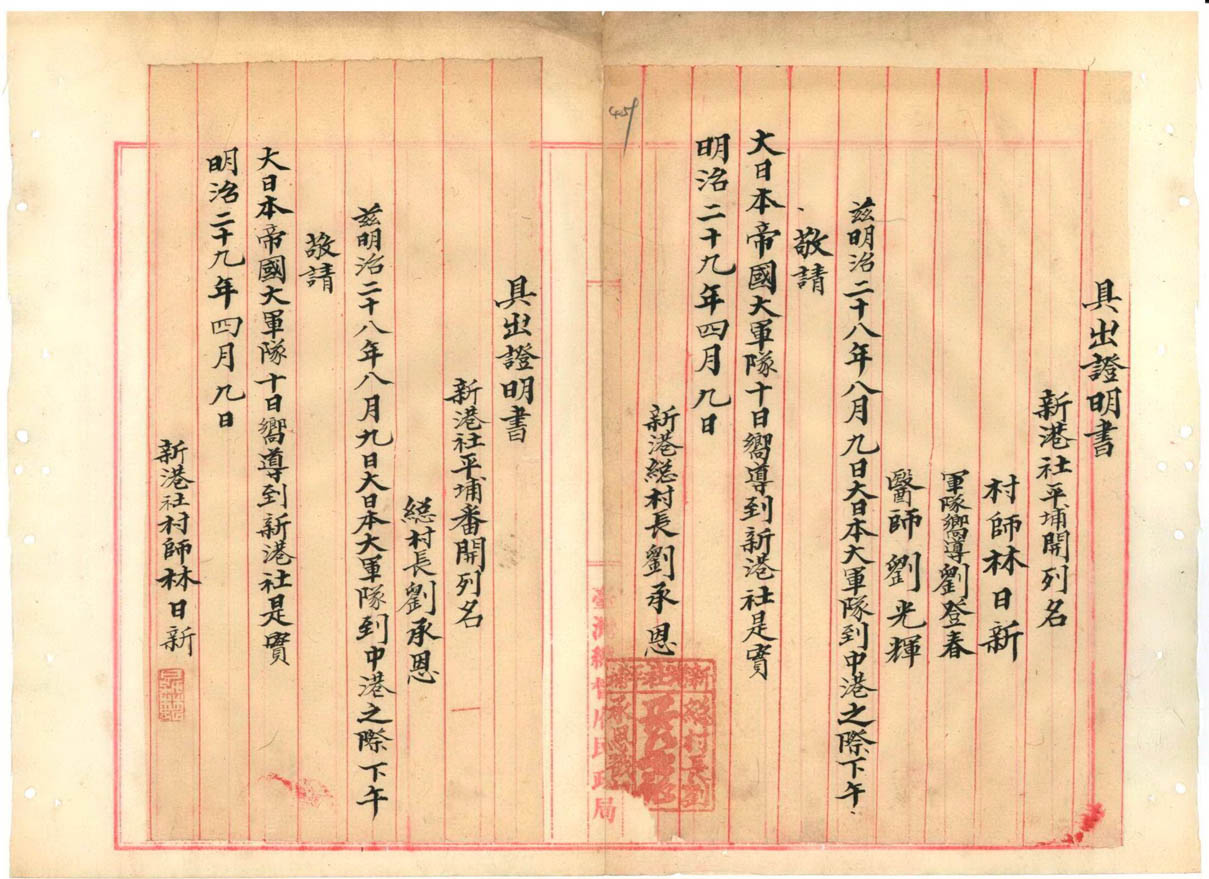 具出證明書
新港社平埔開列名
村師林日新
軍隊嚮導劉登春
醫師劉光輝
茲明治二十八年八月九日大日本大軍隊到中港之際下午
敬請
大日本帝國大軍隊十日嚮導到新港社是實
明治二十九年四月九日
新港總村長劉承恩
新
社
總村長劉
承恩戳
臺灣總
府民政局
具出證明書
新港社平埔番開列名
總村長劉承恩
茲明治二十八年八月九日大日本大軍隊到中港之際下午
敬請
大日本帝國大軍隊十日嚮導到新港社是實
明治二十九年四月九日
新港社村師林日新